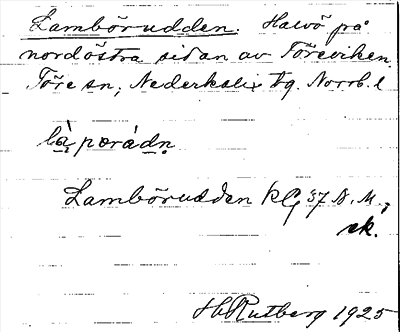 Lambörudden. Halvö på
nordöstra sidan av Töreviken.
Töre sn, Nederkalix tg. Norrb. l
Lambörudden KG 37 N. M.,
sk.
H Rutberg 1925